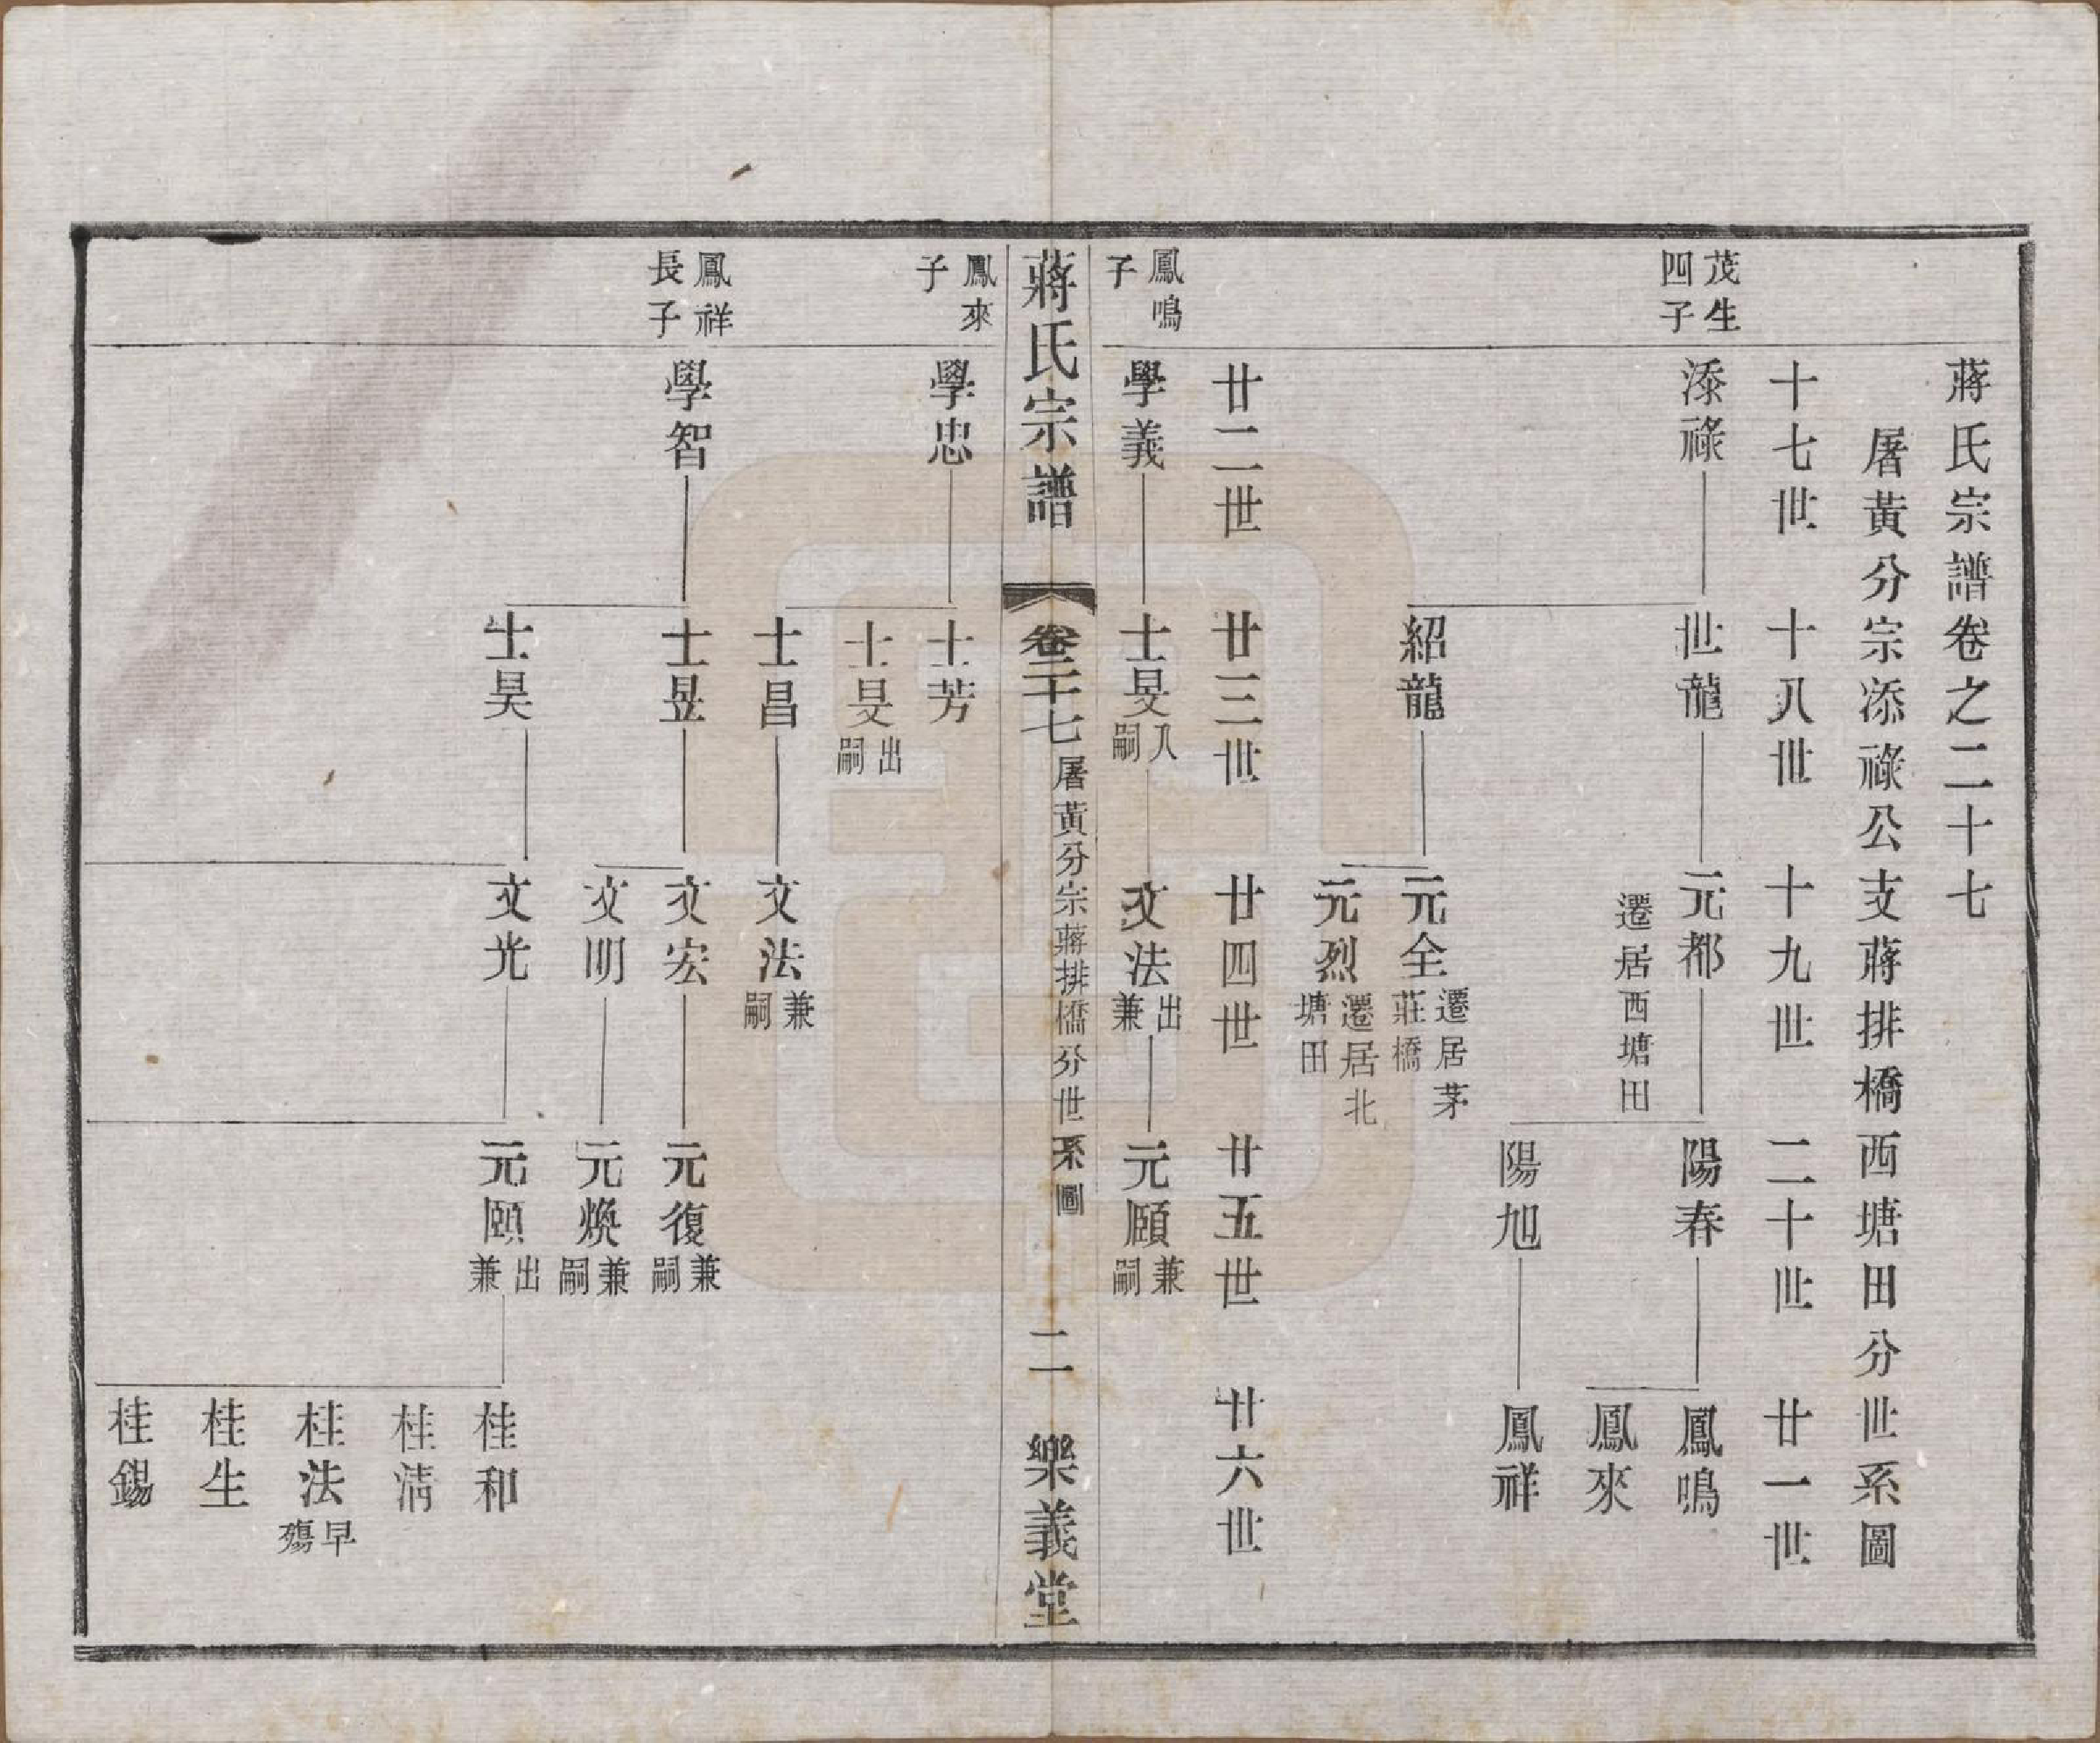 蔣氏宗譜卷之二十七
屠黃分宗添祿公支蔣排橋西塘田分世系圖
十七世 十八世 十九世 二十世 廿一世
茂生四子
添祿 世龍 元都 陽春 鳳鳴
遷居西塘田
鳳來
陽旭 鳳祥
紹龍 元全 遷居茅莊橋
元烈 遷居北塘田
廿二世 廿三世 廿四世 廿五世 廿六世
鳳鳴子
學義 士旻 入嗣 文法 出兼 元頤 兼嗣
蔣氏宗譜 卷二十七 屠黃分宗蔣排橋分世系圖 二 樂義堂
鳳來子
學忠 士芳
士旻 出嗣
士昌 文法 兼嗣
鳳祥長子
學智 士昱 文宏 元復 兼嗣
文明 元煥 兼嗣
士昊 文光 元頤 出兼 桂和
桂清
桂法 早殤
桂生
桂錫